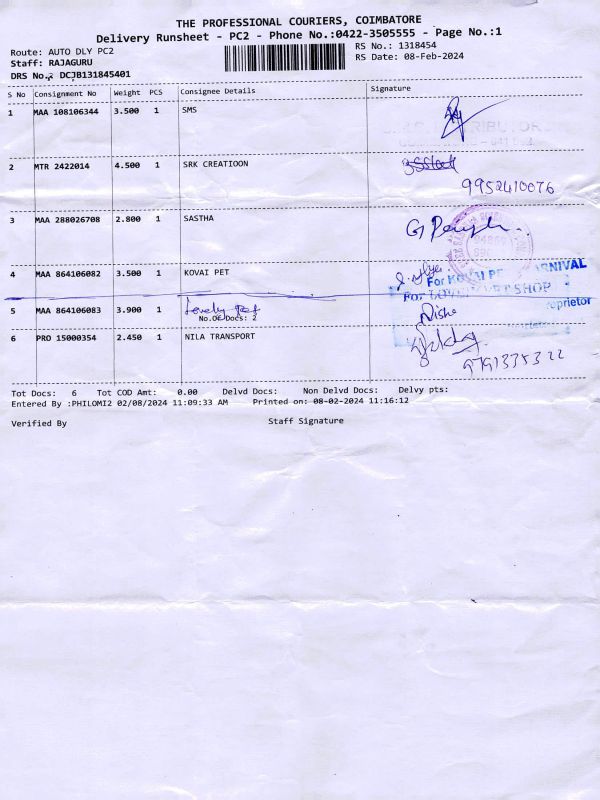 THE PROFESSIONAL COURIERS, COIMBATORE
Delivery Runsheet - PC2 - Phone No.:0422-3505555 - Page No.:1
Route: AUTO DLY PC2
RS No.: 1318454
Staff: RAJAGURU
RS Date: 08-Feb-2024
DRS No.: DCJB131845401
S No Consignment No Weight PCS Consignee Details Signature
1 MAA 108106344 3.500 1 SMS
2 MTR 2422014 4.500 1 SRK CREATIOON
9952410076
3 MAA 288026708 2.800 1 SASTHA
4 MAA 864106082 3.500 1 KOVAI PET
For KOVAI
SHOP
5 MAA 864106083 3.900 1 Lovely Pet
No.Of Docs: 2
6 PRO 15000354 2.450 1 NILA TRANSPORT
9791335322
Tot Docs: 6 Tot COD Amt: 0.00 Delvd Docs: Non Delvd Docs: Delvy pts:
Entered By :PHILOMI2 02/08/2024 11:09:33 AM Printed on: 08-02-2024 11:16:12
Verified By Staff Signature